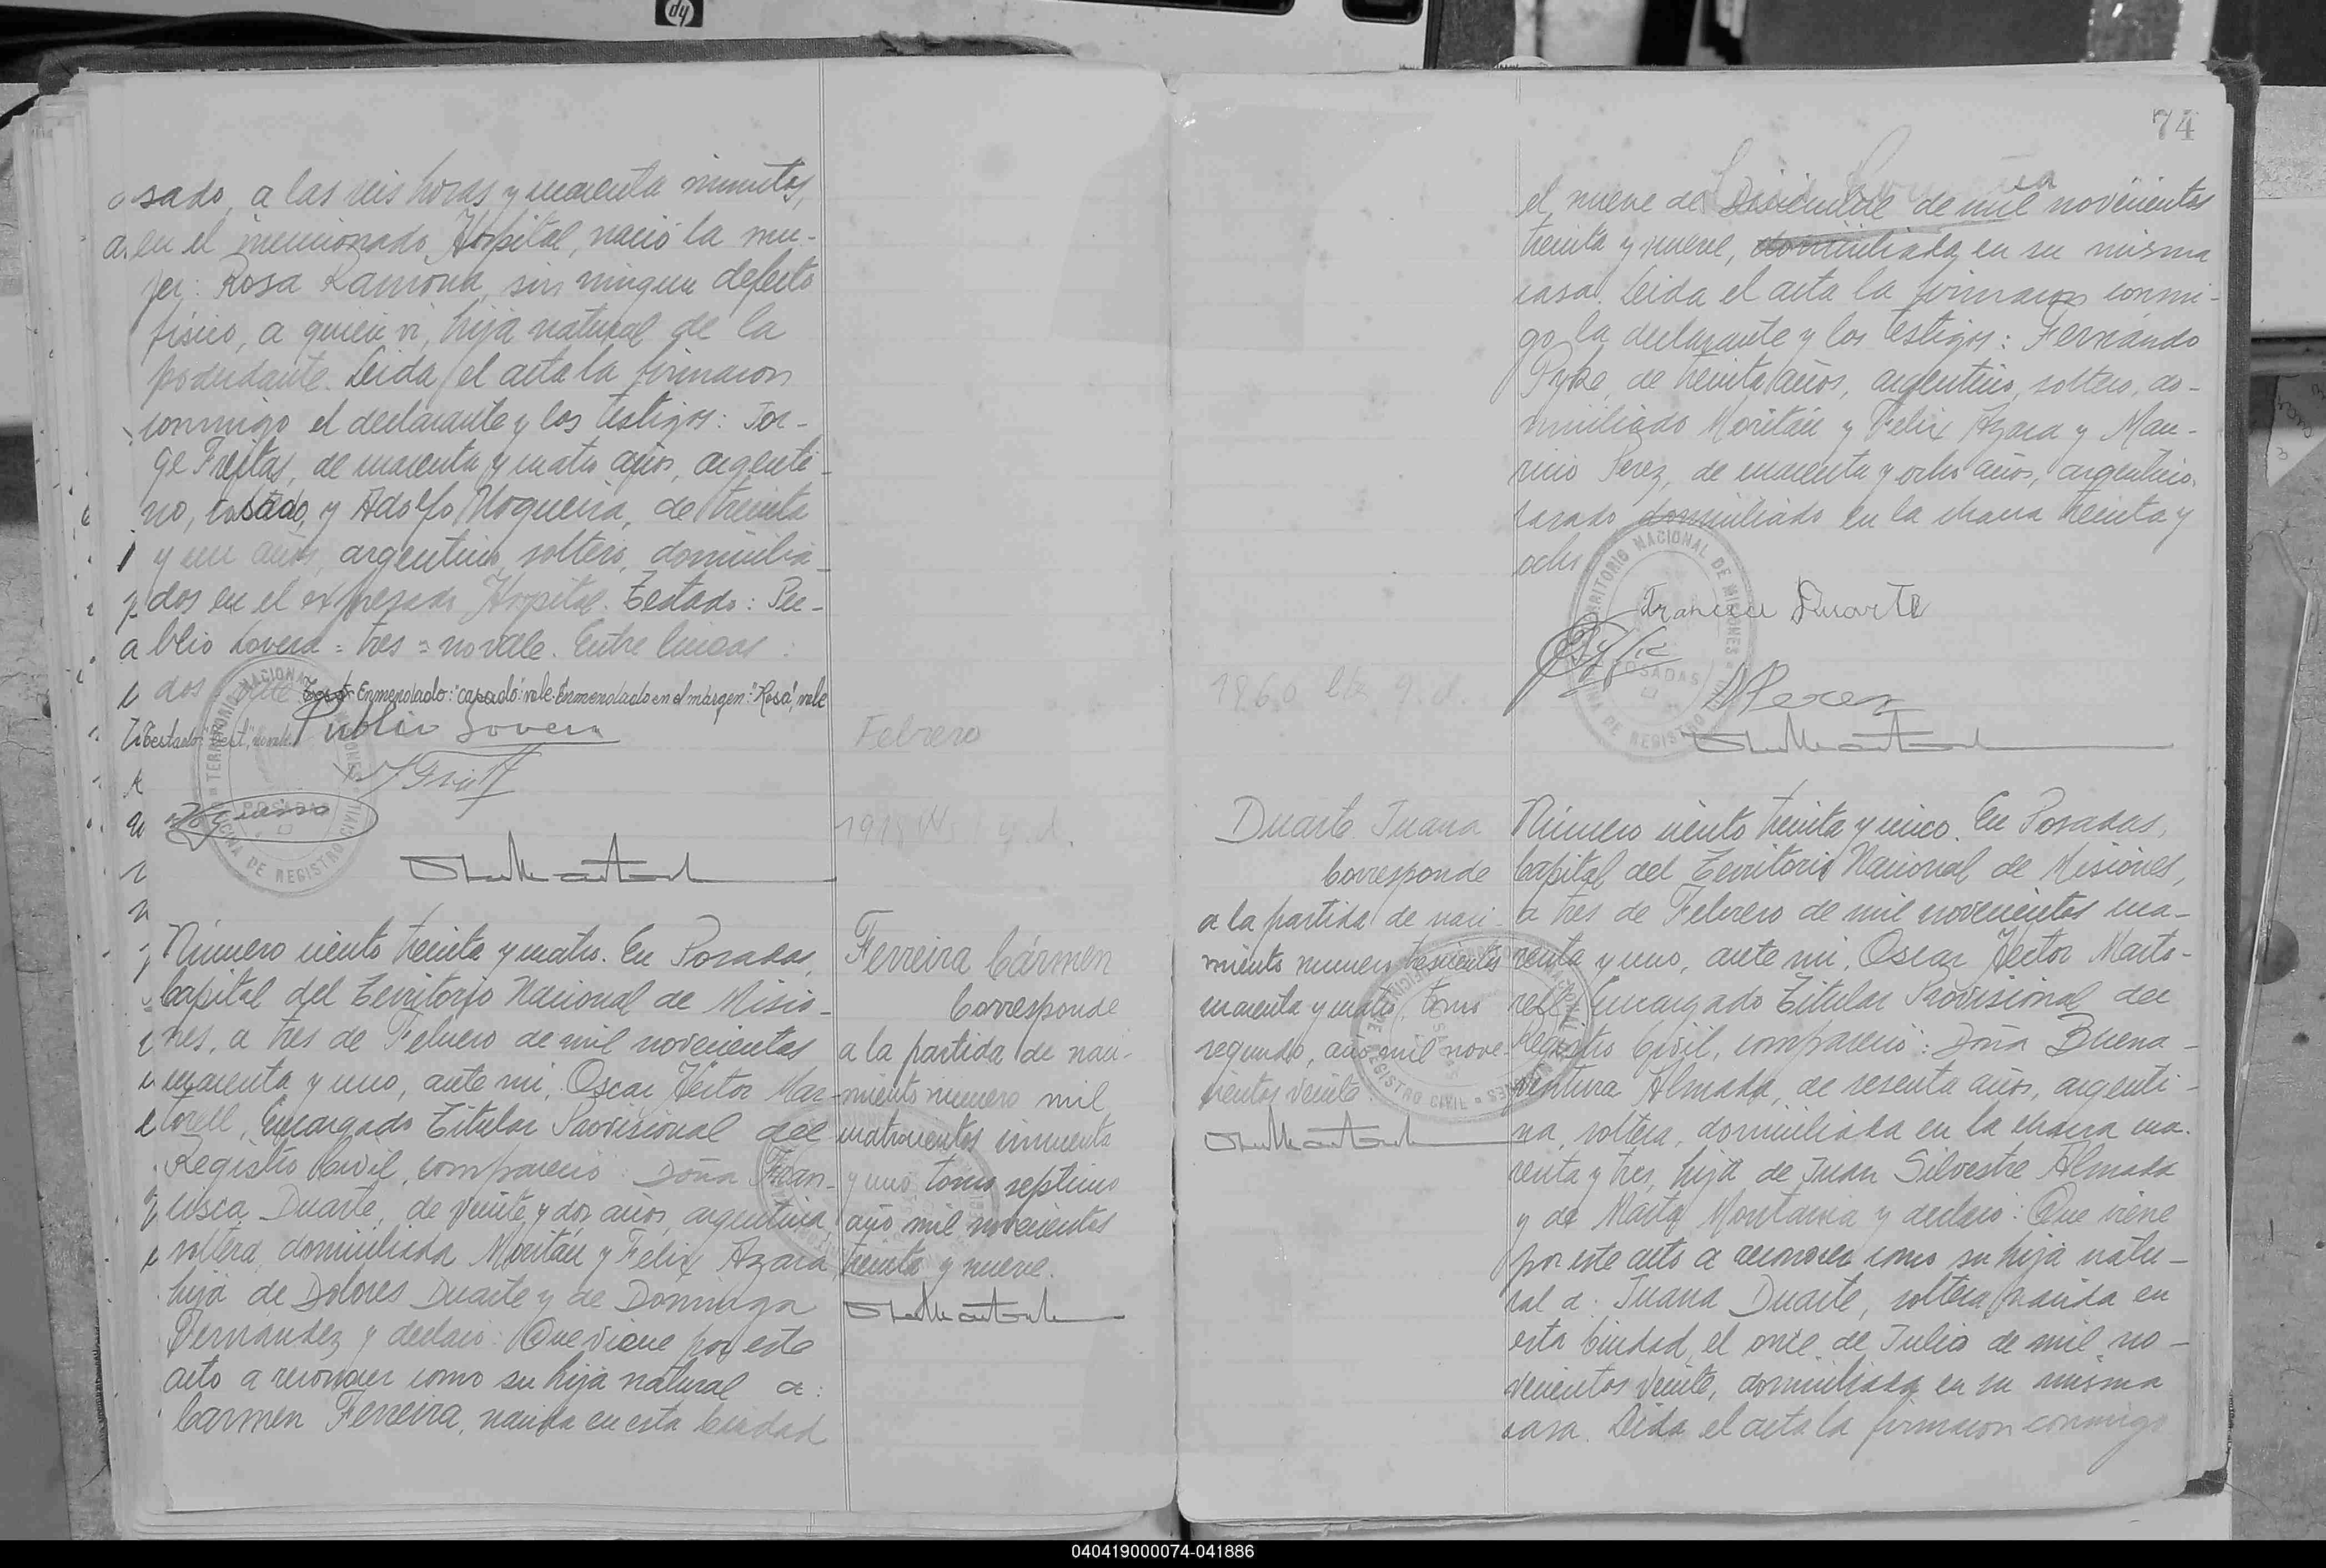 sado, a las seis horas y cuarenta minutos,
en el mencionado Hospital, nació la mu-
jer: Rosa Ramona, sin ningun defecto
físico, a quien vi, hija natural de la
poderdante. Leida el acta la firmaron
conmigo el declarante y los testigos: Jor-
ge Freitas, de cuarenta y cuatro años, argenti-
no, casado, y Adolfo Nogueira, de treinta
y un años, argentino, soltero, domicilia-
dos en el expresado Hospital. Testado: Pu-
blio Lovera = tres = no vale. Entre lineas:
dos Enmendado: "casado": vale. Enmendado en el márgen: "Rosa", vale
Publio Lovera
Febrero
POSADAS
OFICINA DE REGISTRO CIVIL
Número ciento treinta y cuatro. En Posadas,
Capital del Territorio Nacional de Misio-
nes, a tres de Febrero de mil novecientos
cuarenta y uno, ante mi, Oscar Héctor Mar-
torell, Encargado Titular Provisional del
Registro Civil, compareció: Doña Fran-
cisca Duarte, de veinte y dos años, argentina,
soltera, domiciliada Moritán y Felix Azara,
hija de Dolores Duarte y de Dominga
Fernandez y declaró: Que viene por este
acto a reconocer como su hija natural a:
Carmen Ferreira, nacida en esta Ciudad
Ferreira Cármen
Corresponde
a la partida de naci-
miento numero mil
cuatrocientos cincuenta
y uno tomo septimo
año mil novecientos
treinta y nueve.
74
el nueve de Diciembre de mil novecientos
treinta y nueve, domiciliada en su misma
casa. Leida el acta la firmaron conmi-
go la declarante y los testigos: Fernando
Pyke, de treinta años, argentino, soltero, do-
miciliado Moritán y Felix Azara y Mau-
ricio Perez, de cuarenta y ocho años, argentino,
casado domiciliado en la chacra treinta y
ocho
TERRITORIO NACIONAL DE MISIONES
POSADAS
OFICINA DE REGISTRO
Francisca Duarte
MPerez
Duarte Juana
Corresponde
a la partida de naci-
miento numero trescientos
cuarenta y cuatro, tomo
segundo, año mil nove-
cientos veinte.
Número ciento treinta y cinco. En Posadas,
Capital del Territorio Nacional de Misiones,
a tres de Febrero de mil novecientos cua-
renta y uno, ante mi, Oscar Héctor Marto-
rell, Encargado Titular Provisional del
Registro Civil, compareció: Doña Buena-
ventura Almada, de sesenta años, argenti-
na, soltera, domiciliada en la chacra cua-
renta y tres, hija de Juan Silvestre Almada
y de Marta Montania y declaró: Que viene
por este acto a reconocer como su hija natu-
ral a: Juana Duarte, soltera, nacida en
esta Ciudad, el once de Julio de mil no-
vecientos veinte, domiciliada en su misma
casa. Leida el acta la firmaron conmigo
040419000074-041886